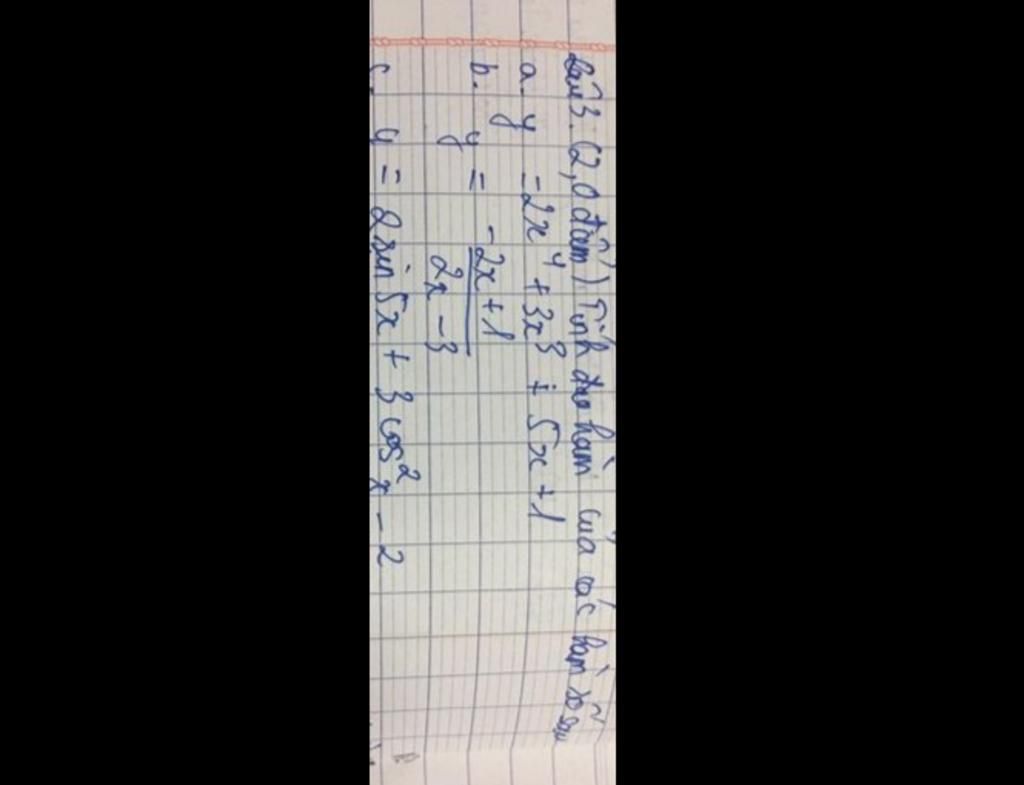 Câu 3. (2,0 điểm) Tính đạo hàm của các hàm số sau
a. y = 2x⁴ + 3x³ + 5x + 1
b. y = (-2x + 1)/(2x - 3)
c. y = 2sin 5x + 3cos² x - 2